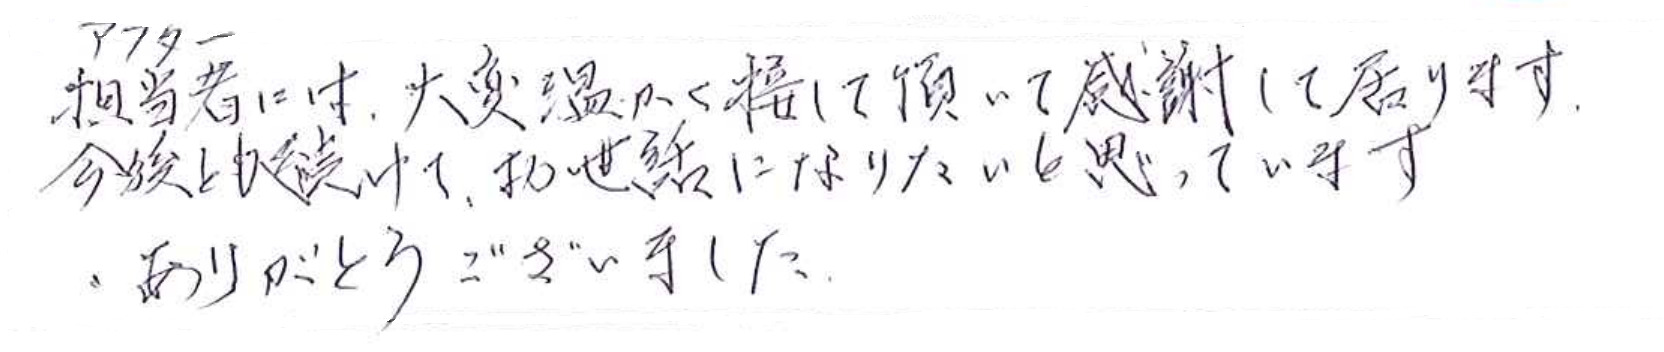 アフター
担当者には、大変温かく接して頂いて感謝して居ります。
今後とも続けて、お世話になりたいと思っています
、ありがとうございました。